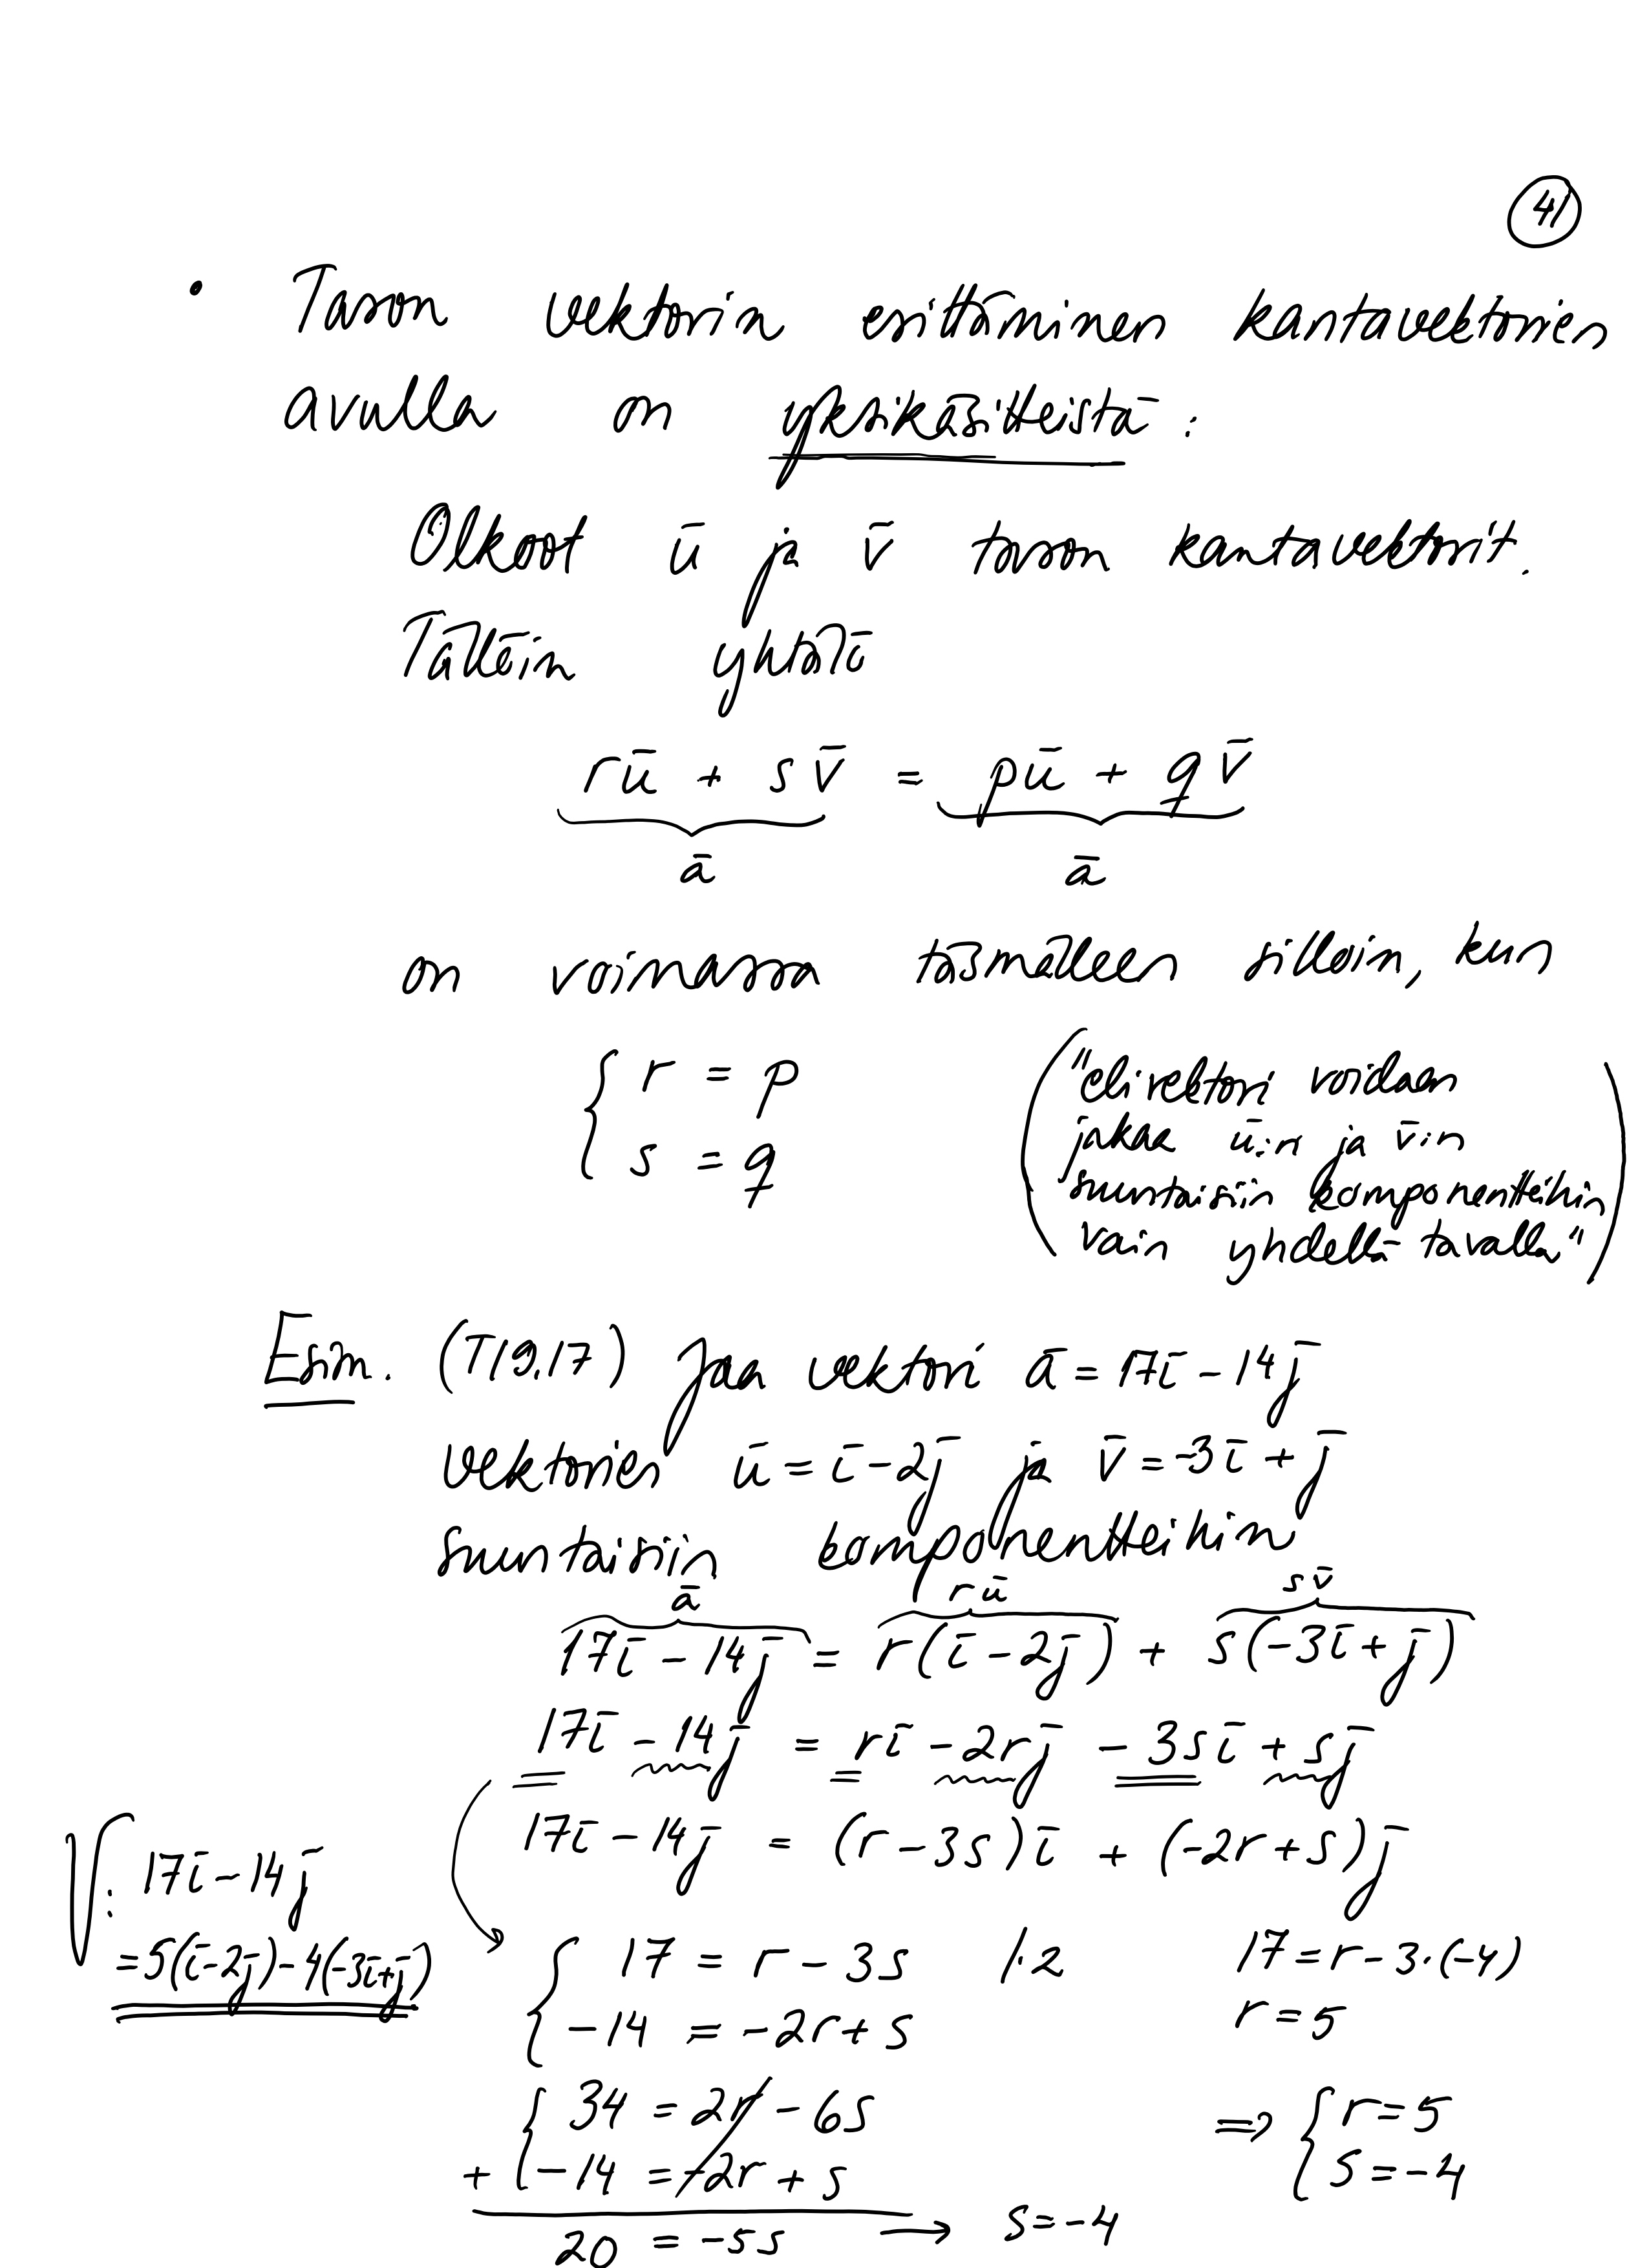 41
• Tason vektorin esittäminen kantavektorien
avulla on yksikäsitteistä:
Olkoot ū ja v̄ tason kantavektorit.
Tällöin yhtälö
rū + sv̄ = pū + qv̄
ā ā
on voimassa täsmälleen silloin, kun
{ r = p
s = q
("eli vektori voidaan
jakaa ū:n ja v̄:n
suuntaisiin komponentteihin
vain yhdellä tavalla")
Esim. (T19.17) Jaa vektori ā = 17ī - 14j̄
vektorien ū = ī - 2j̄ ja v̄ = -3ī + j̄
suuntaisiin komponentteihin
ā rū sv̄
17ī - 14j̄ = r(ī - 2j̄) + s(-3ī + j̄)
17ī - 14j̄ = rī - 2rj̄ - 3sī + sj̄
17ī - 14j̄ = (r - 3s)ī + (-2r + s)j̄
{ 17 = r - 3s |·2
-14 = -2r + s
{ 34 = 2r - 6s
+ -14 = -2r + s
20 = -5s → s = -4
17 = r - 3·(-4)
r = 5
⇒ { r = 5
s = -4
V: 17ī - 14j̄
= 5(ī - 2j̄) - 4(-3ī + j̄)